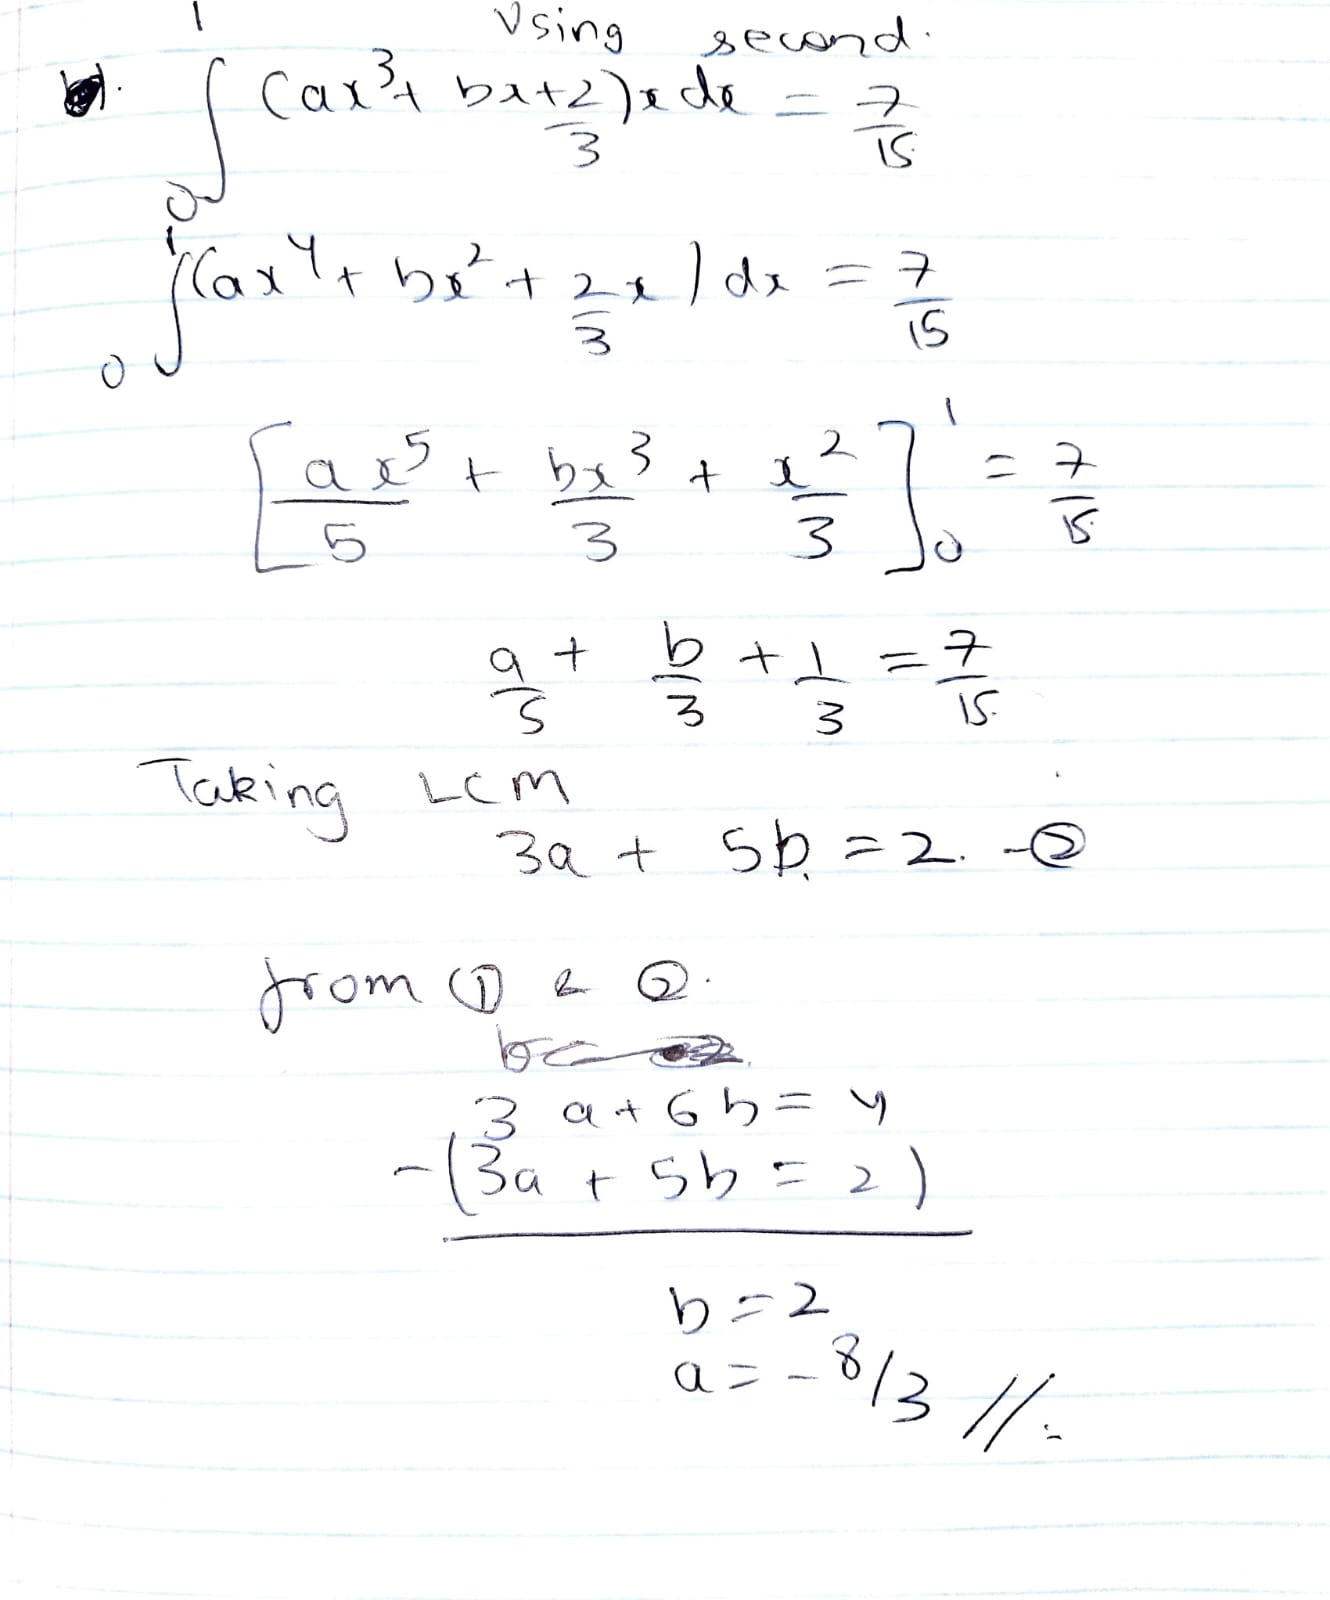 Using second.
∫₀¹ (ax³ + bx + 2/3)x dx = 7/15
∫₀¹ (ax⁴ + bx² + 2/3 x) dx = 7/15
[ax⁵/5 + bx³/3 + x²/3]₀¹ = 7/15
a/5 + b/3 + 1/3 = 7/15
Taking LCM
3a + 5b = 2. -②
from ① & ②.
3a + 6b = 4
-(3a + 5b = 2)
b = 2
a = -8/3 //